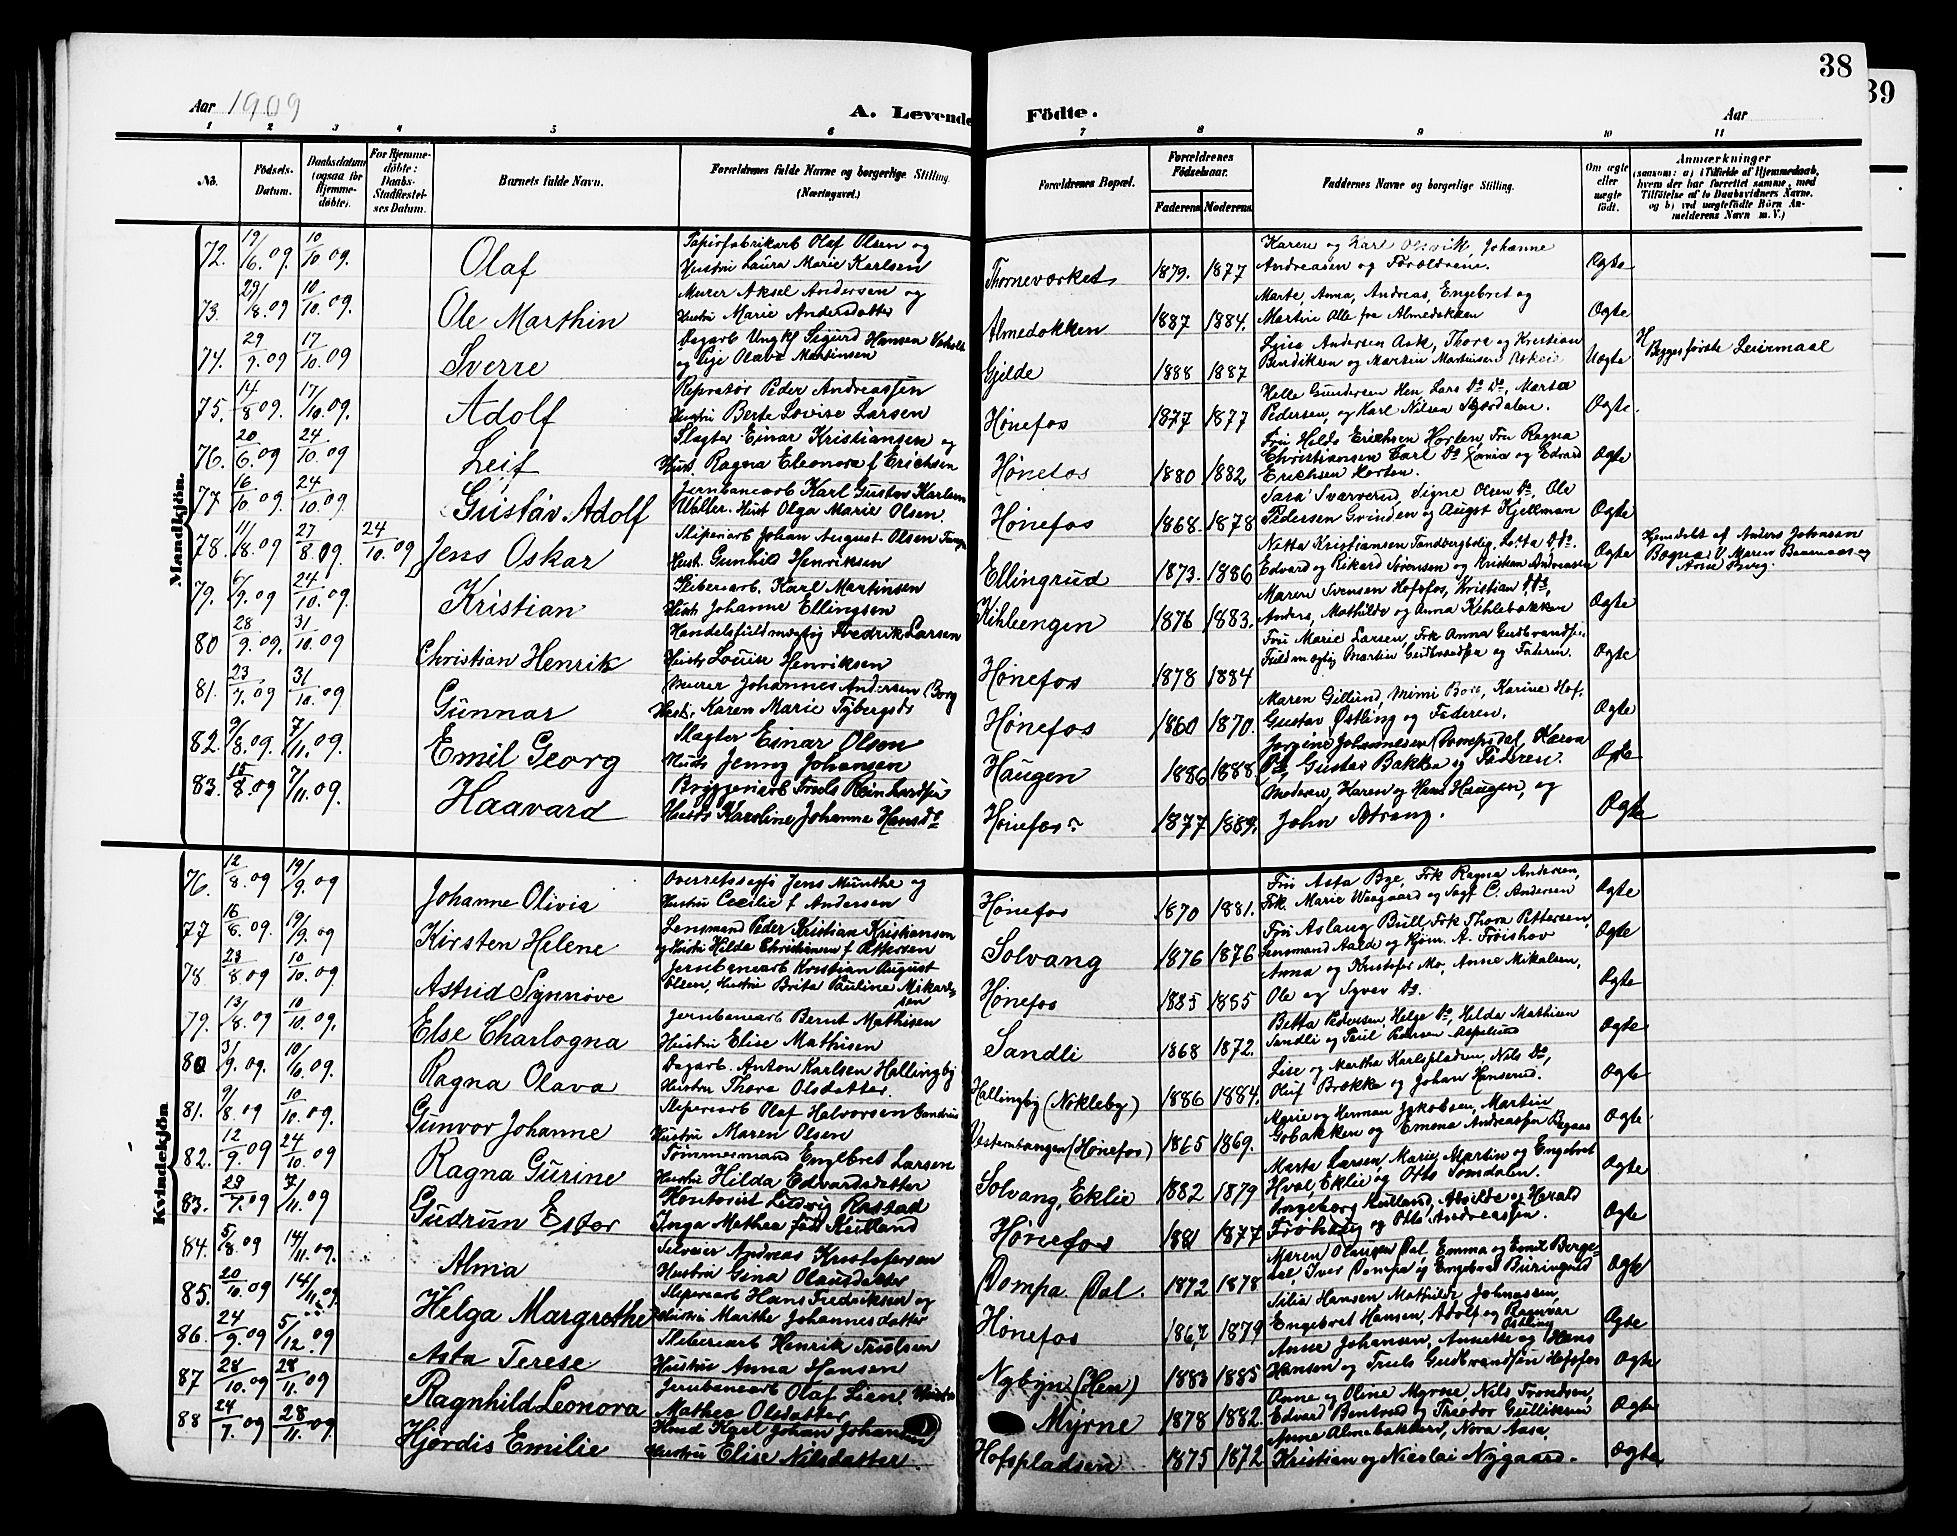 38
39
Aar 1909
A. Levende Födte.
Aar
1 2 3 4 5 6 7 8 9 10 11
No.
Födsels-Datum.
Daabsdatum (ogsaa for Hjemme-döbte).
For Hjemme-döbte: Daabs-Stadfæstel-ses Datum.
Barnets fulde Navn.
Forældrenes fulde Navne og borgerlige Stilling (Næringsvei.)
Forældrenes Bopæl.
Forældrenes Födselsaar.
Faderens Moderens
Faddernes Navne og borgerlige Stilling.
Om ægte eller uægte födt.
Anmærkninger
(saasom: a) i Tilfælde af Hjemmedaab,
hvem der har forrettet samme, med
Tilföielse af to Daabsvidners Navne,
og b) ved uægtefödte Börn An-
melderens Navn m. V.)
Mandkjön.
72. 19/6 09. 10/10 09. Olaf
Papirfabrikarb Olaf Olsen og
Hustru Laura Marie Karlsen
Thorneværket 1879. 1877
Karen og Karl Olsvik, Johanne
Andreasen og Forældrene.
Ægte
73. 29/8. 09 10/10. 09. Ole Marthin
Murer Aksel Andersen og
Hustru Marie Andersdatter
Almedokken 1887 1884.
Marte, Anna, Andreas, Engebret og
Martin Alle fra Almedokken
Ægte
74. 29/9. 09 17/10. 09 Sverre
Dagarb Ungkl Sigurd Hansen
og Pige Olava Martinsen
Gjelde 1888 1887
Andersen Ask, Thora og Kristian
Bendiksen og Martin Martinsen
Uægte
Begges første Leiermaal
75. 14/8 09. 17/10. 09. Adolf
Reperatør Peder Andreassen
Hustru Berte Lovise Larsen
Hønefos 1877 1877
Helle Gundersen Hen, Lars Do Do, Marta
Pedersen, og Karl Nilsen
Ægte.
76. 20/6. 09 24/10. 09 Leif
Slagter Einar Kristiansen og
Hust. Ragna Eleonora f Erichsen
Hønefos 1880 1882
Fru Hilda Erichsen Horten, Fru Ragna
Christiansen Carl Do Xania og Edvard
Erichsen Horten.
Ægte
77 16/10. 09. 24/10. 09 Gustav Adolf
Jernbanearb Karl Gustav Karlsen
Hust Olga Marie Olsen.
Hønefos 1868. 1878
Sara Sværverud, Signe Olsen Do, Ole
Pedersen Grinden og August Kjellman
Ægte
78. 11/8. 09 27/8. 09. 24/10. 09 Jens Oskar
Sliperiarb Johan August Olsen
Hust. Gunhild Henriksen
Ellingrud 1873. 1886
Netta Kristiansen Tandbergbølig, Lotta Do.
Edvard og Rikard Sørensen og Kristian Andreasen
Ægte
Hjemdøbt af Anders Johansen
79. 6/9. 09 24/10. 09. Kristian
Sliberiarb. Karl Martinsen
Hust Johanne Ellingsen
Kihleengen 1876 1883.
Maren Svensen Hofsfos, Kristian
Anders, Mathilde og Anna Kihlebakken
Ægte
80 28/9. 09. 31/10. 09 Christian Henrik
Handelsfuldmægtig Fredrik Larsen
Hust Louise Henriksen
Hønefos 1878 1884
Fru Marie Larsen, Frk Anna Gudbrandsen
Fuldmægtig Martin Gudbrandsen og Faderen.
Ægte
81. 23/7. 09 31/10. 09 Gunnar
Murer Johannes Andersen Borg
Hust. Karen Marie
Hønefos 1860 1870.
Maren Gillund, Mimi Bore, Karine Hof.
Gustav Østling og Faderen.
Ægte
82. 9/8. 09. 7/11. 09. Emil Georg
Slagter Einar Olsen
Hust Jenny Johansen
Haugen 1886 1888
Jorgine Johannesen
Do, Gustav Bakka og Faderen.
Ægte
83. 15/8. 09 7/11. 09. Haavard
Bryggeriarb Truls Reinhardsen
Hust Karoline Johanne Hansdr
Hønefos 1877 1889.
Moderen, Karen og Hans Haugen, og
John Strang.
Ægte
Kvindekjön
76. 12/8. 09 19/9. 09 Johanne Olivia
Overretssagf Jens Munthe og
Hustru Cecilie f Andersen
Hønefos 1870 1881.
Fru Asta Bye, Frk Ragna Andersen,
Frk. Marie Waagaard og Sagf C. Andersen
Ægte
77 16/8. 09. 19/9. 09 Kirsten Helene
Lensmand Peder Kristian Kristiansen
og Hustru Hilda Christiansen f
Solvang 1876 1876
Fru Aslaug Bull, Frk Thora Pettersen,
Lensmand Aalde og Kjøm. A. Frøishov
Ægte
78 23/8 09 10/10. 09. Astrid Synnøve
Jernbanearb Kristian August
Olsen, Hustru Brita Pauline Mikael-
sen
Hønefos 1885 1885
Anna og Kristofer Mo, Anne Mikalsen,
Ole og Syver Do.
Ægte
79. 13/8. 09 10/10. 09. Else Charlogna
Jernbanearb Bernt Mathisen
Hustru Elise Mathisen
Sandli 1868 1872.
Betta Pedersen, Helge Do, Hilda Mathisen
Sandli og Paul Pedersen Aspelund
Ægte
80 3/9. 09. 10/10. 09. Ragna Olava
Dagarb. Anton Karlsen Hallingby
Hustru Thora Olsdatter.
Hallingby (Nokleby) 1886 1884.
Lise og Martha Karlspladsen, Nils Do,
Oluf Brække og Johan Hanserud.
Ægte
81. 9/8. 09 10/10. 09. Gunvor Johanne
Sliperiarb Olaf Halvorsen
Hustru Maren Olsen
(Hønefos) 1865 1869.
Marie og Herman Jakobsen, Martin
Gobakken og Emma Andreassen
Ægte
82. 12/9. 09 24/10. 09 Ragna Gurine
Tømmermand Engebret Larsen
Hustru Hilda Edvardsdatter
Solvang, Eklie 1882 1879
Marta Larsen, Marie, Martin og Engebret
Hval, Eklie og Otto Somdalen.
Ægte
83. 28/7. 09 7/11. 09 Gudrun Ester
Kontorist Ludvig Rastad
Inga Mathea født Rutland
Hønefos 1881 1877
Ingeborg Rutland, Alvilde og Harald
Frøhaug og Otto Andreassen.
Ægte
84. 5/8. 09 14/11. 09. Alma
Andreas Kristofersen
Hustru Gina Olausdatter
Dompa Dal. 1872 1878
Maren Olaugen Dal, Emma og Emil Berge-
dal, Iver Dompa og Engebret Buringrud
Ægte
85. 20/10. 09 14/11. 09. Helga Margrethe
Sliperiarb Hans Fredriksen og
Hustru Marthe Johannesdatter
Hønefos 1867 1879
Silia Hansen Mathilde Johnassen,
Engebret Hansen, Adolf og Ragnvar
Østling
Ægte
86. 24/9. 09 5/12. 09 Asta Terese
Sliberiarb Henrik Trulsen
Hustru Anna Hansen
Nybyn (Hen) 1883 1885
Anne Johansen, Annette og Hans
Hansen og Truls Gudbrandsen Hofsfos
Ægte
87 28/10. 09 28/11. 09 Ragnhild Leonora
Jernbanearb Olaf Lien, Hustru
Mathea Olsdatter
Myrne 1878 1882.
Anne og Oline Myrne, Nils Trondsen,
Edvard Bentrud og Theodor Gulliksen
Ægte
88 24/7. 09 28/11. 09 Hjørdis Emilie
Karl Johan Johansen
Hustru Elise Nilsdatter.
Hofspladsen 1875 1872
Anne Almebakken, Nora Aasa,
Kristian og Nicolai Nygaard.
Ægte